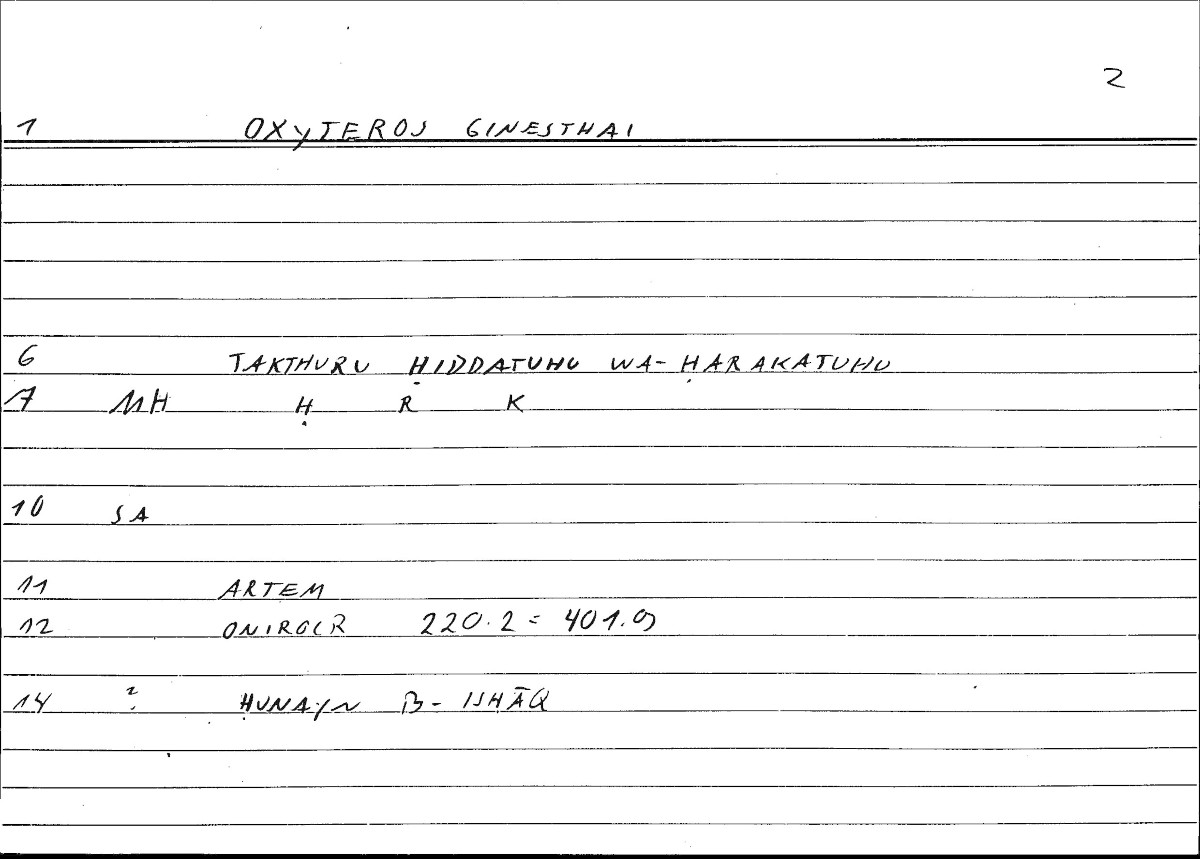 2
1 OXYTEROS GINESTHAI
6 TAKTHURU ḤIDDATUHU WA- ḤARAKATUHU
7 MH Ḥ R K
10 SA
11 ARTEM
12 ONIROCR 220.2 = 401.9
14 ? ḤUNAYN B- ISHĀQ